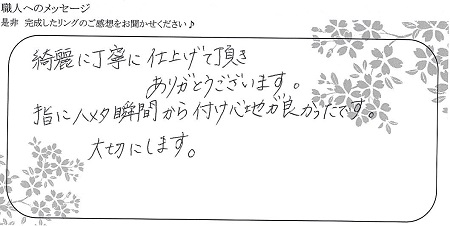 職人へのメッセージ
是非 完成したリングのご感想をお聞かせください♪
綺麗に丁寧に仕上げて頂き
ありがとうございます。
指にハメタ瞬間から付け心地が良かったです。
大切にします。